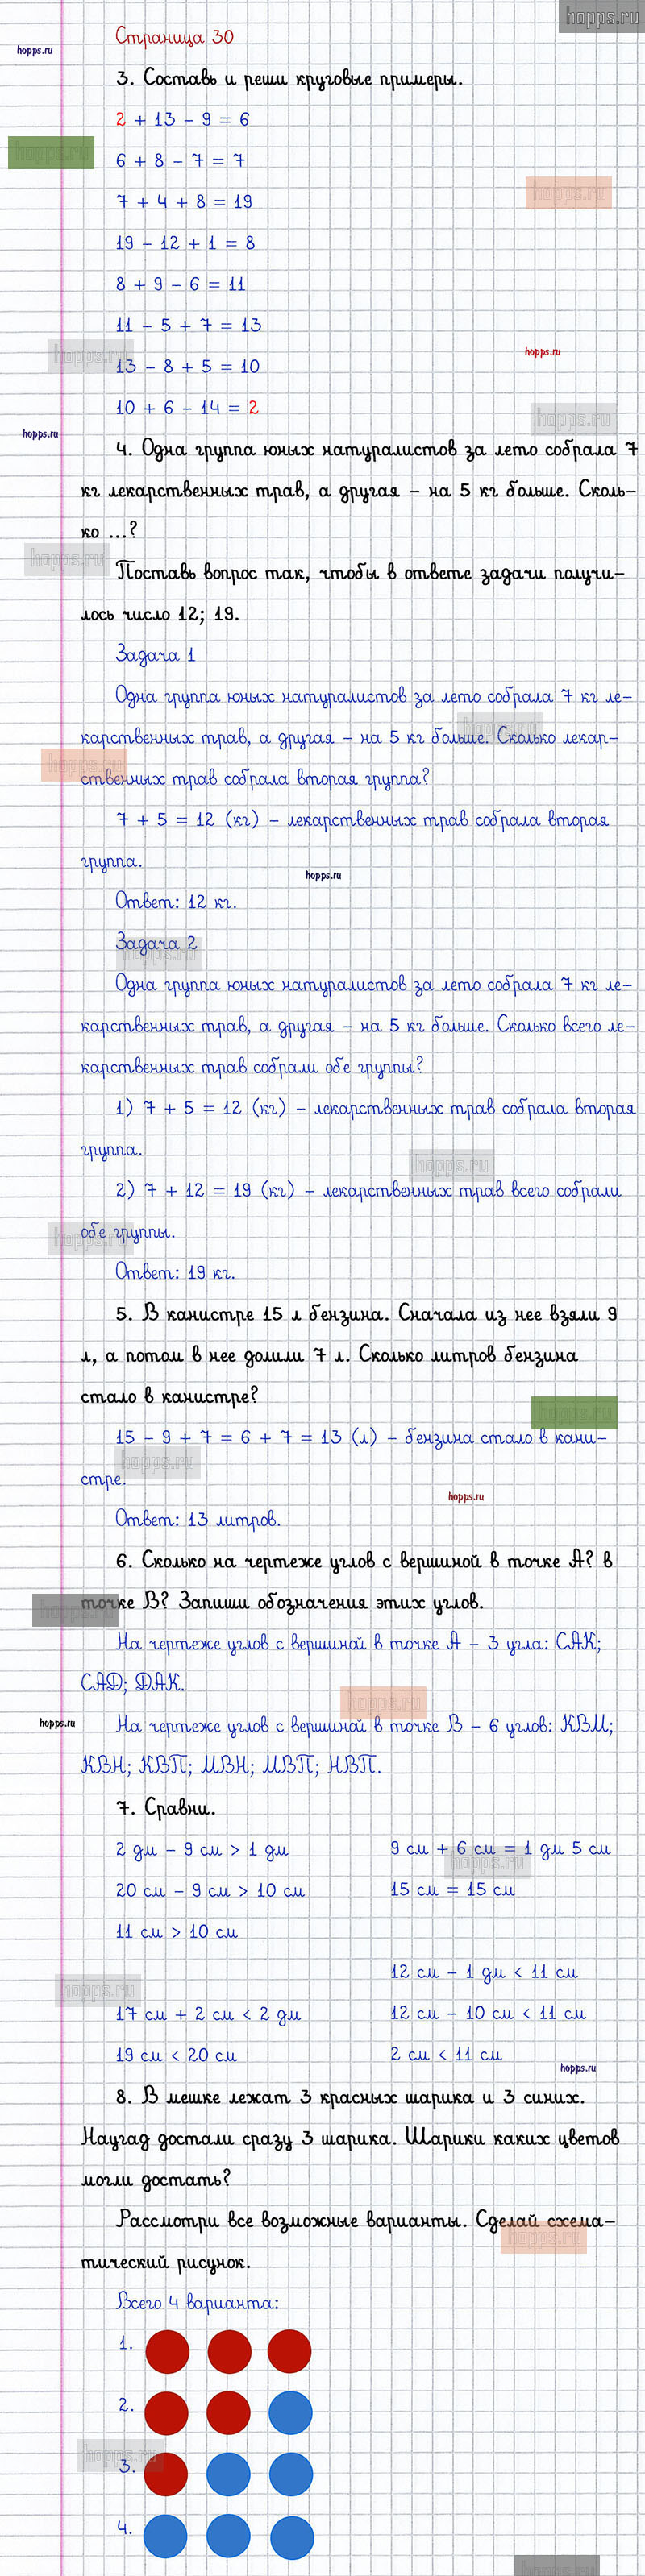 hopps.ru
Страница 30
hopps.ru
3. Составь и реши круговые примеры.
2 + 13 - 9 = 6
hopps.ru
6 + 8 - 7 = 7
hopps.ru
7 + 4 + 8 = 19
19 - 12 + 1 = 8
8 + 9 - 6 = 11
11 - 5 + 7 = 13
hopps.ru
hopps.ru
13 - 8 + 5 = 10
10 + 6 - 14 = 2
hopps.ru
hopps.ru
4. Одна группа юных натуралистов за лето собрала 7
кг лекарственных трав, а другая – на 5 кг больше. Сколь-
ко ...?
hopps.ru
Поставь вопрос так, чтобы в ответе задачи получи-
лось число 12; 19.
Задача 1
Одна группа юных натуралистов за лето собрала 7 кг ле-
hopps.ru
карственных трав, а другая – на 5 кг больше. Сколько лекар-
hopps.ru
ственных трав собрала вторая группа?
7 + 5 = 12 (кг) – лекарственных трав собрала вторая
группа.
hopps.ru
Ответ: 12 кг.
Задача 2
hopps.ru
Одна группа юных натуралистов за лето собрала 7 кг ле-
карственных трав, а другая – на 5 кг больше. Сколько всего ле-
карственных трав собрали обе группы?
1) 7 + 5 = 12 (кг) – лекарственных трав собрала вторая
группа.
hopps.ru
2) 7 + 12 = 19 (кг) – лекарственных трав всего собрали
обе группы.
hopps.ru
Ответ: 19 кг.
5. В канистре 15 л бензина. Сначала из нее взяли 9
л, а потом в нее долили 7 л. Сколько литров бензина
стало в канистре?
hopps.ru
15 - 9 + 7 = 6 + 7 = 13 (л) – бензина стало в кани-
hopps.ru
стре.
hopps.ru
Ответ: 13 литров.
6. Сколько на чертеже углов с вершиной в точке А? в
точке В? Запиши обозначения этих углов.
hopps.ru
На чертеже углов с вершиной в точке А – 3 угла: САК;
САD; DАК.
hopps.ru
hopps.ru
На чертеже углов с вершиной в точке В – 6 углов: КВМ;
КВН; КВП; МВН; МВП; НВП.
7. Сравни.
2 дм - 9 см > 1 дм
9 см + 6 см = 1 дм 5 см
hopps.ru
20 см - 9 см > 10 см
15 см = 15 см
11 см > 10 см
12 см - 1 дм < 11 см
hopps.ru
17 см + 2 см < 2 дм
12 см - 10 см < 11 см
19 см < 20 см
2 см < 11 см
hopps.ru
8. В мешке лежат 3 красных шарика и 3 синих.
Наугад достали сразу 3 шарика. Шарики каких цветов
могли достать?
Рассмотри все возможные варианты. Сделай схема-
hopps.ru
тический рисунок.
Всего 4 варианта:
1.
2.
hopps.ru
3.
4.
hopps.ru